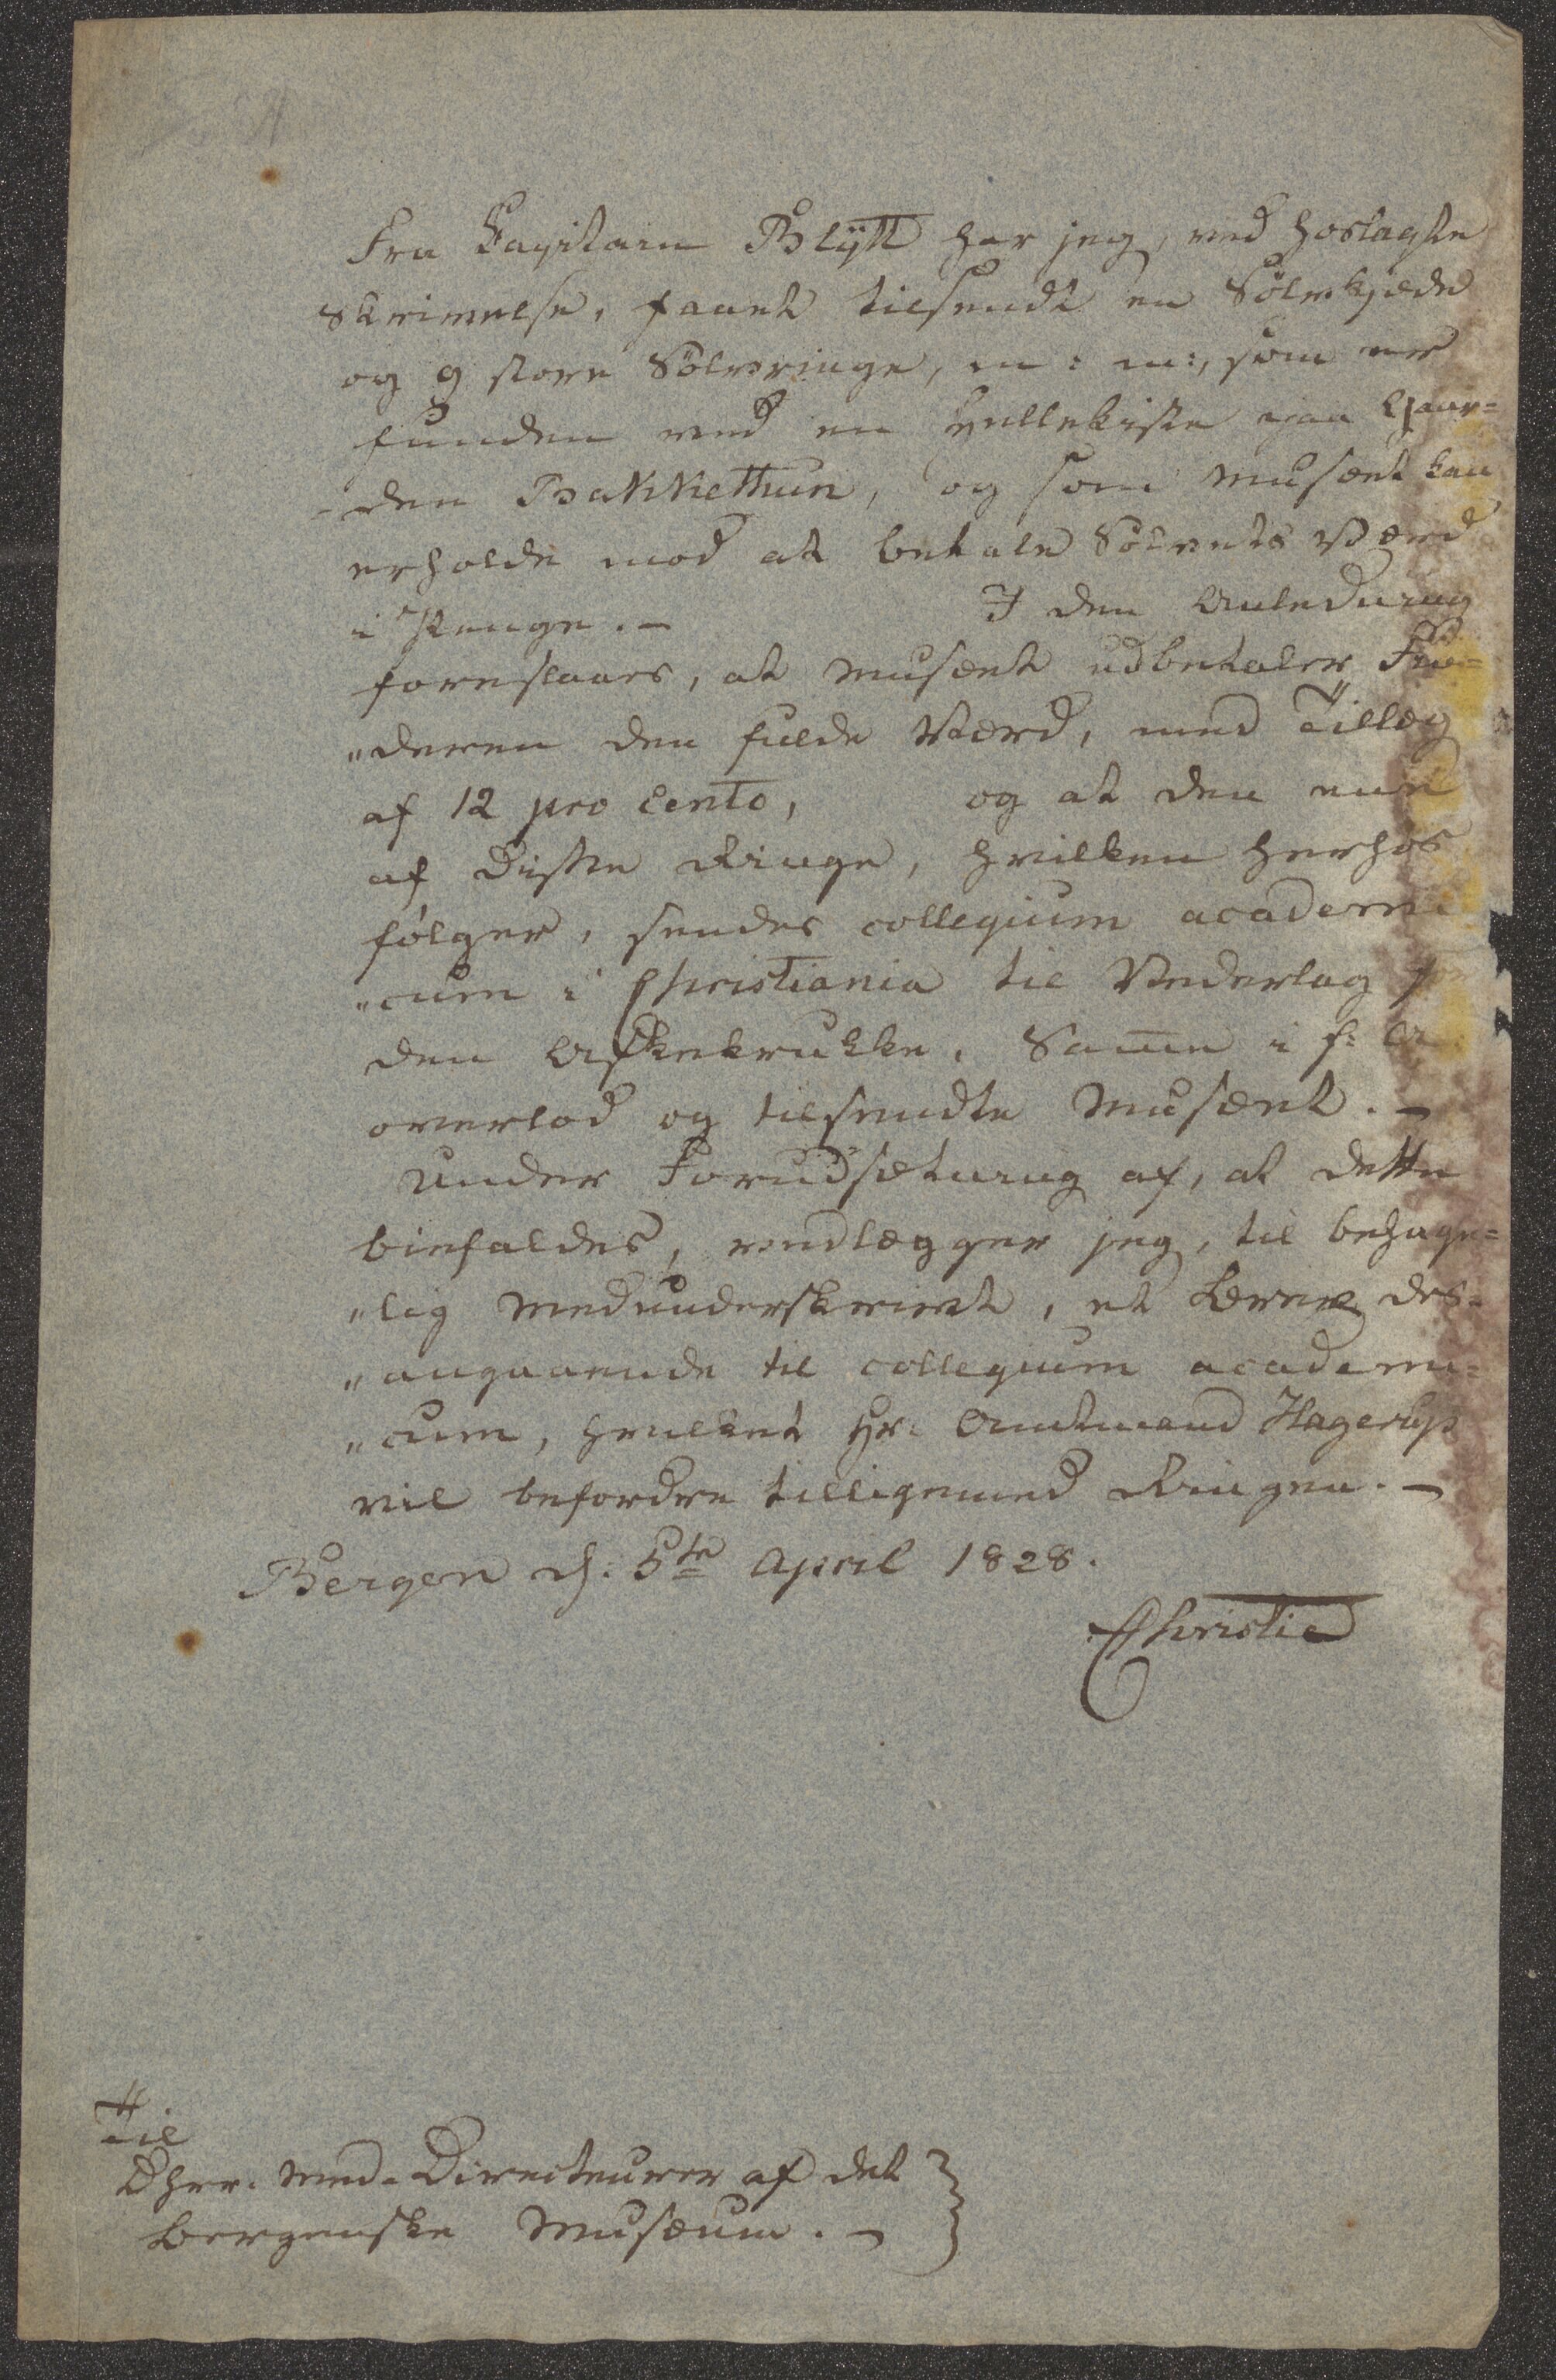 Fra Capitain Blÿtt har jeg, ved hoslagte
Skrivelse, faaet tilsendt en Sølvkjæde
og 9 store Sølvringe, m: m:, som ere
funden ved en Hellekiste paa Gaar=
-den Bakkethun, og som Musæet kan
erholde mod at betale Sølvets Værd
i Penge. – I den Anledning
foreslaaes, at Musæet udbetaler Fin=
"deren den fulde Værd, med Tillæg
af 12 pro Cento, og at den ene
af disse Ringe, hvilken herhos
følger, sendes collegium academi
"cum i Christiania til Vederlag for
den Askekrukke, Samme i f: A:
overlod og tilsendte Musæet. –
Under Forudsætning af, at dette
biefaldes, vedlægger jeg, til behage=
"lig Medunderskrivt, et Brev des=
"angaaende til collegium academi=
"cum, hvilket Hr: Amtmand Hagerup
vil befordre tilligemed Ringen. –
Bergen d: 5te April 1828.
Christie
Til
Dhrr. Med-Directeurer af det
Bergenske Musæum. –